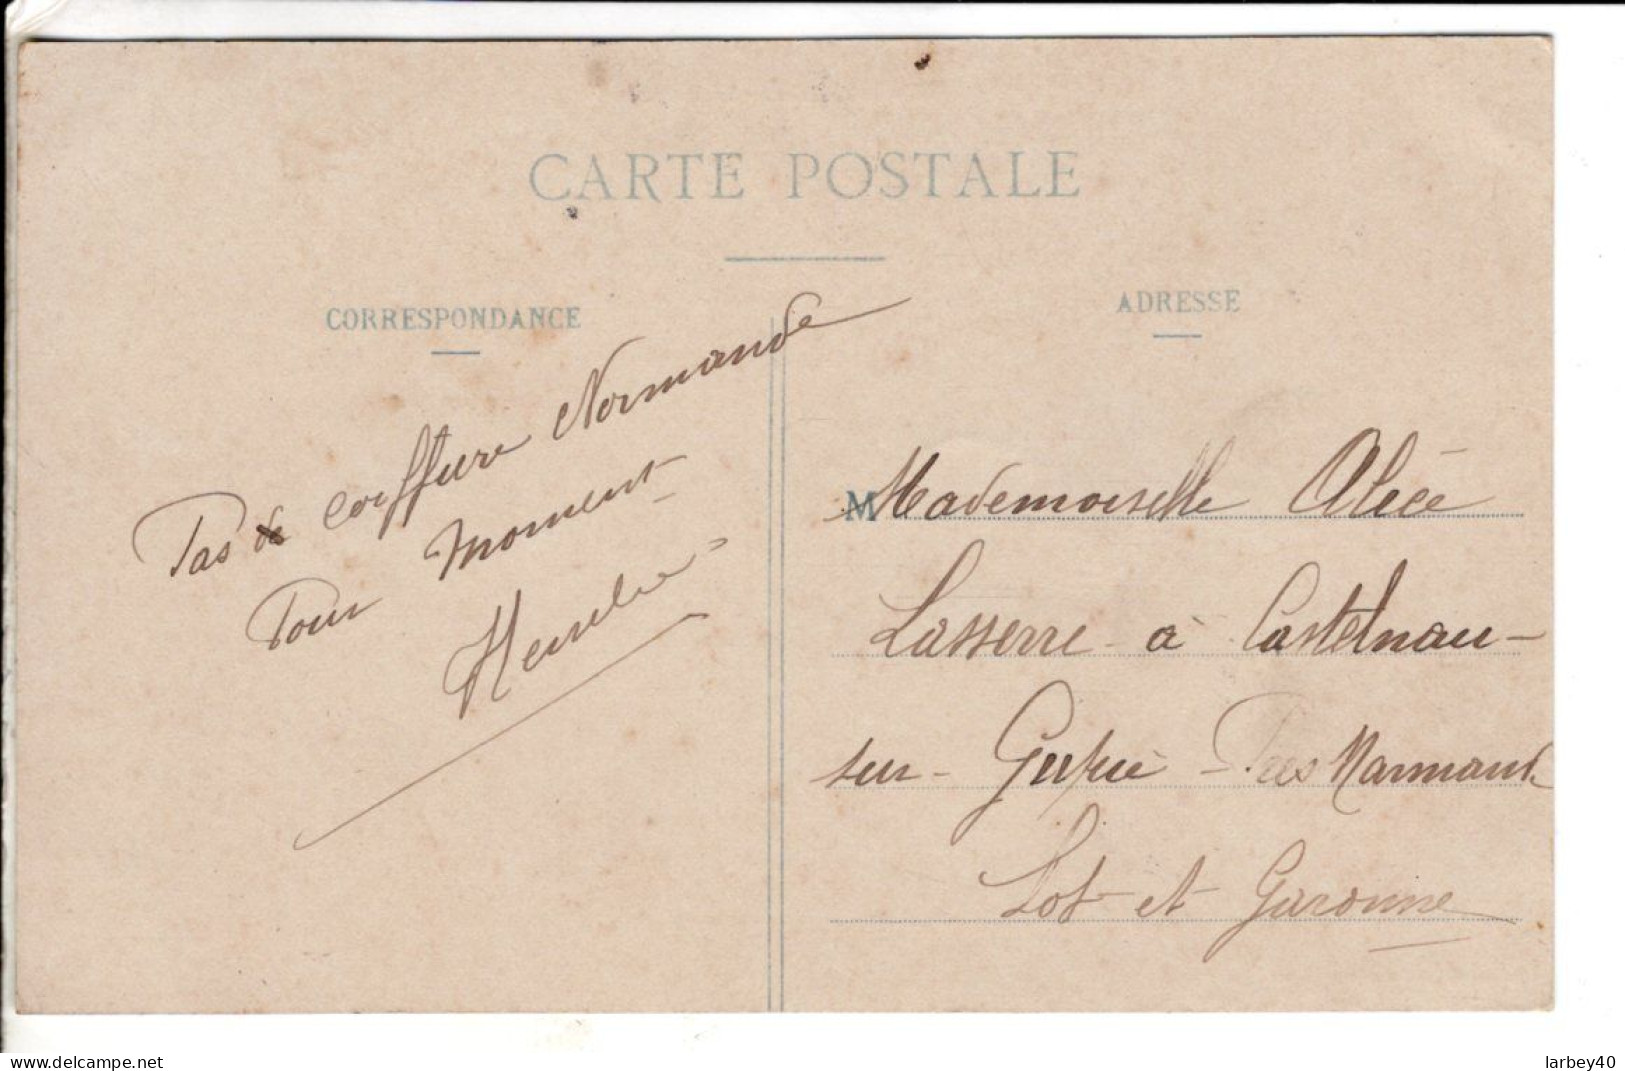 CARTE POSTALE
CORRESPONDANCE
ADRESSE
Pas de coiffure Normande
Pour moment
M Mademoiselle Alice
Lasserre à Castelnau-
sur-Gupie - Près Marmande
Lot et Garonne
delcampe.net
larbey40